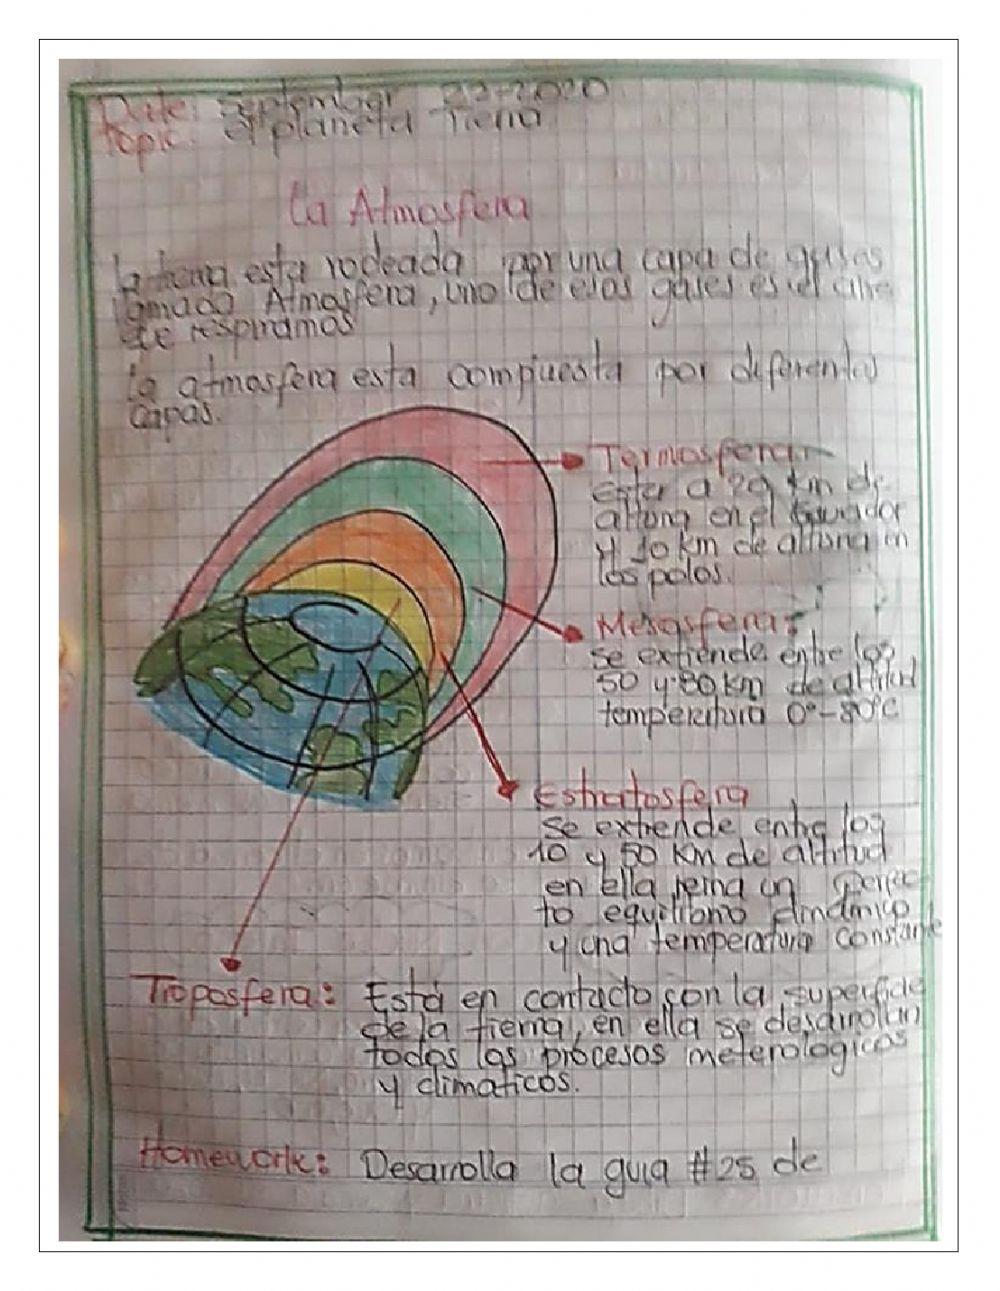 Date: September 22-2020
Topic: el planeta Tierra
La Atmosfera
la tierra esta rodeada por una capa de gases
llamada Atmosfera, uno de esos gases es el
que respiramos
La atmosfera esta compuesta por diferentes
capas.
Termosfera
Esta a 29 km de
altura en el Ecuador
y 10 km de altura en
los polos.
Mesosfera:
se extiende entre los
50 y 80 km de altitud
temperatura 0°-80°C
Estratosfera
se extiende entre los
10 y 50 Km de altitud
en ella reina un perfec-
to equilibrio dinamico
y una temperatura constante
Troposfera: Está en contacto con la superficie
de la tierra, en ella se desarrollan
todos los procesos meterologicos
y climaticos.
Homework: Desarrolla la guia #25 de